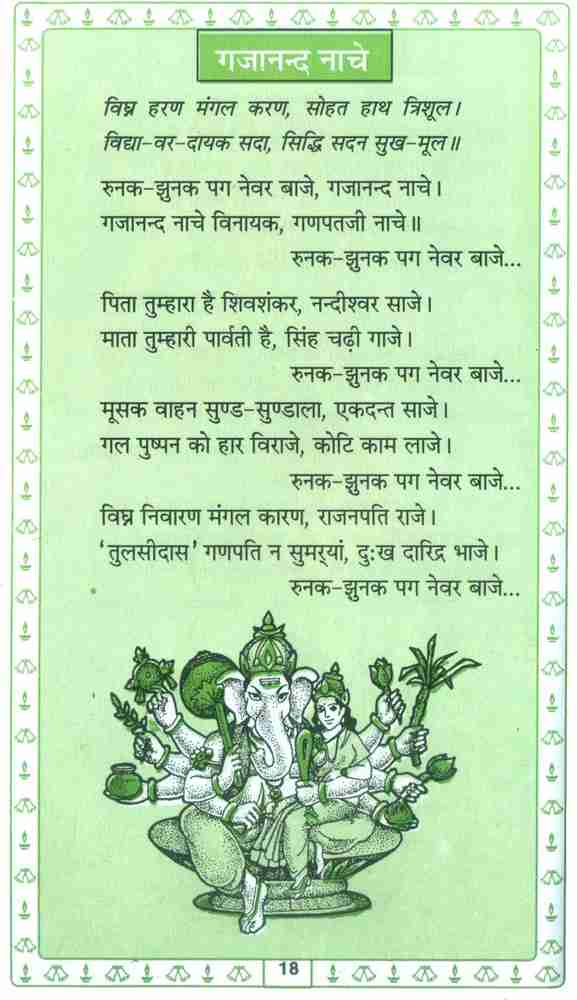 गजानन्द नाचे
विघ्न हरण मंगल करण, सोहत हाथ त्रिशूल।
विद्या-वर-दायक सदा, सिद्धि सदन सुख-मूल॥
रुनक-झुनक पग नेवर बाजे, गजानन्द नाचे।
गजानन्द नाचे विनायक, गणपतजी नाचे॥
रुनक-झुनक पग नेवर बाजे...
पिता तुम्हारा है शिवशंकर, नन्दीश्वर साजे।
माता तुम्हारी पार्वती है, सिंह चढ़ी गाजे।
रुनक-झुनक पग नेवर बाजे...
मूसक वाहन सुण्ड-सुण्डाला, एकदन्त साजे।
गल पुष्पन को हार विराजे, कोटि काम लाजे।
रुनक-झुनक पग नेवर बाजे...
विघ्न निवारण मंगल कारण, राजनपति राजे।
‘तुलसीदास’ गणपति न सुमर्‌यां, दुःख दारिद्र भाजे।
रुनक-झुनक पग नेवर बाजे...
18